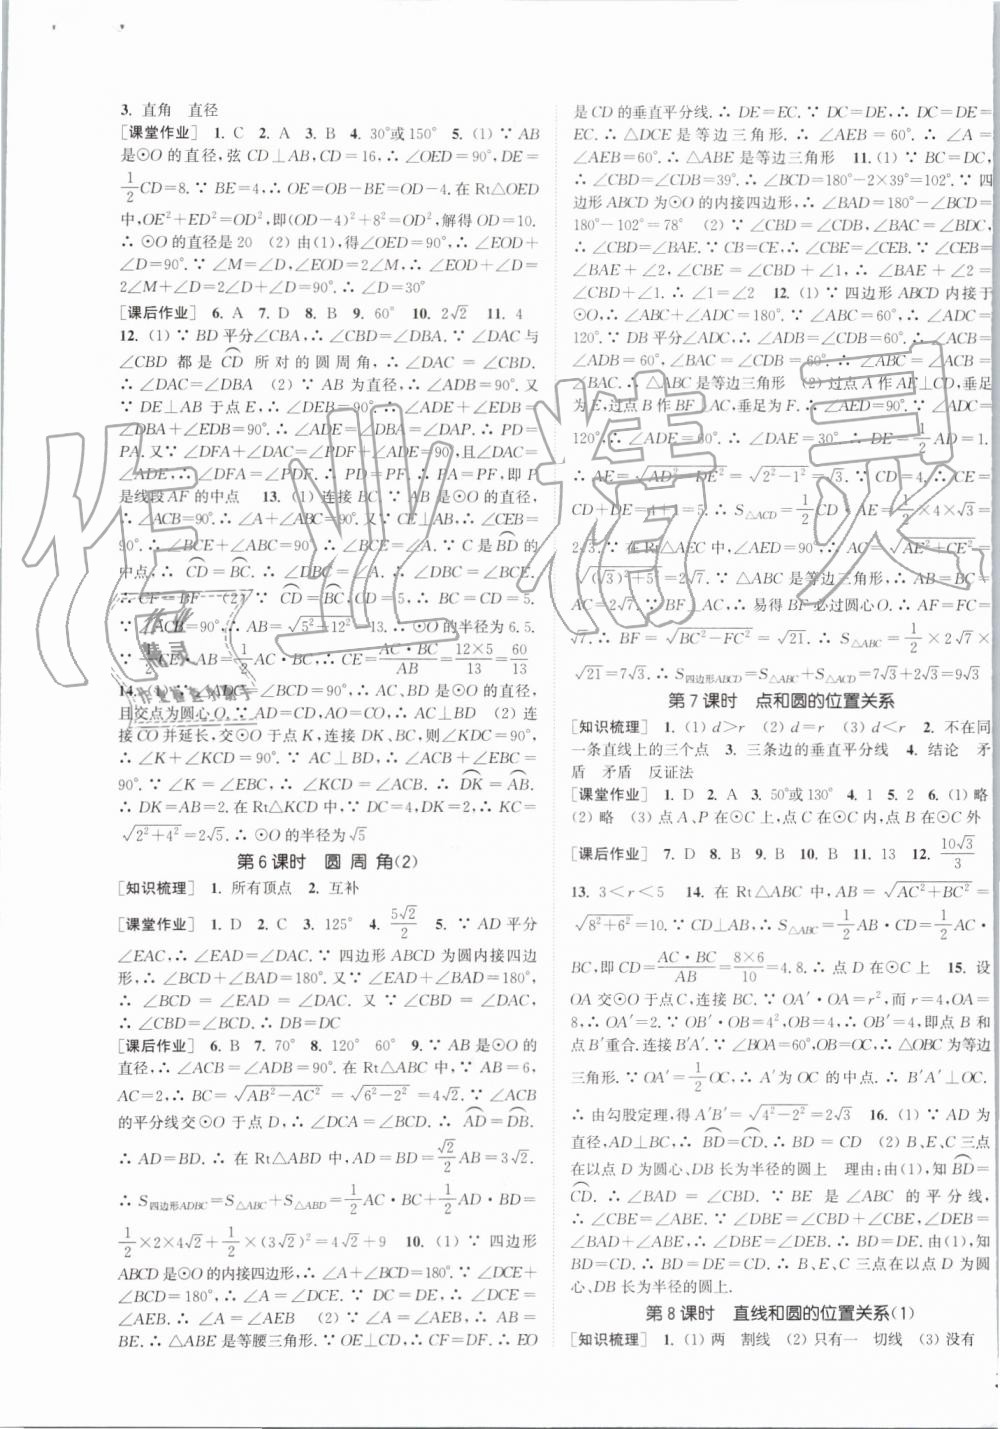 3. 直角　直径
[课堂作业]　1. C　2. A　3. B　4. 30°或150°　5. (1) ∵ AB
是⊙O的直径,弦CD⊥AB,CD=16,∴ ∠OED=90°,DE=
1/2 CD=8.∵ BE=4,∴ OE=OB-BE=OD-4.在Rt△OED
中,OE²+ED²=OD²,即(OD-4)²+8²=OD²,解得OD=10.
∴ ⊙O的直径是20　(2) 由(1),得∠OED=90°,∴ ∠EOD+
∠D=90°.∵ ∠M=∠D,∠EOD=2∠M,∴ ∠EOD+
∠D=2∠M+∠D=2∠D+∠D=90°.∴ ∠D=30°
[课后作业]　6. A　7. D　8. B　9. 60°　10. 2√2　11. 4
12. (1) ∵ BD平分∠CBA,∴ ∠CBD=∠DBA.∵ ∠DAC与
∠CBD 都是 CD 所对的圆周角,∴ ∠DAC=∠CBD.
∴ ∠DAC=∠DBA　(2) ∵ AB为直径,∴ ∠ADB=90°.又
∵ DE⊥AB于点E,∴ ∠DEB=90°.∴ ∠ADE+∠EDB=
∠DBA+∠EDB=90°.∴ ∠ADE=∠DBA=∠DAP.∴ PD=
PA.又∵ ∠DFA+∠DAC=∠PDF+∠ADE=90°,且∠DAC=
∠ADE,∴ ∠PDF=∠DFA.∴ PD=PF.∴ PA=PF,即P
是线段AF的中点　13. (1) 连接BC.∵ AB是⊙O的直径,
∴ ∠ACB=90°.∴ ∠A+∠ABC=90°.又∵ CE⊥AB,∴ ∠CEB=
90°.∴ ∠BCE+∠ABC=90°.∴ ∠BCE=∠A.∵ C是BD的
中点,∴ CD=BC.∴ ∠DBC=∠A.∴ ∠DBC=∠BCE.
∴ CF=BF　(2) ∵ CD=BC,CD=5,∴ BC=CD=5.
∵ ∠ACB=90°,∴ AB=√(5²+12²)=13.∴ ⊙O的半径为6.5.
∵ 1/2 CE·AB=1/2 AC·BC,∴ CE=AC·BC/AB=12×5/13=60/13
14. (1) ∵ ∠ADC=∠BCD=90°,∴ AC、BD是⊙O的直径,
且交点为圆心O.∵ ∠AOD=∠COD,∴ AD=CD　(2) 连
接CO并延长,交⊙O于点K,连接DK、BC,则∠KDC=90°.
∴ ∠K+∠KCD=90°.∵ AC⊥BD,∴ ∠ACB+∠EBC=
90°.∵ ∠K=∠EBC,∴ ∠KCD=∠ACB.∴ DK=AB.
∴ DK=AB=2.在Rt△KCD中,DC=4,DK=2,∴ KC=
√(2²+4²)=2√5.∴ ⊙O的半径为√5
第6课时　圆 周 角(2)
[知识梳理]　1. 所有顶点　2. 互补
[课堂作业]　1. D　2. C　3. 125°　4. 5√2/2　5. ∵ AD平分
∠EAC,∴ ∠EAD=∠DAC.∵ 四边形ABCD为圆内接四边
形,∴ ∠BCD+∠BAD=180°.又∵ ∠EAD+∠BAD=180°,
∴ ∠BCD=∠EAD=∠DAC.又∵ ∠CBD=∠DAC,
∴ ∠CBD=∠BCD.∴ DB=DC
[课后作业]　6. B　7. 70°　8. 120°　60°　9. ∵ AB是⊙O的
直径,∴ ∠ACB=∠ADB=90°.在Rt△ABC中,∵ AB=6,
AC=2,∴ BC=√(AB²-AC²)=√(6²-2²)=4√2.∵ ∠ACB
的平分线交⊙O于点D,∴ ∠DCA=∠BCD.∴ AD=DB.
∴ AD=BD.∴ 在Rt△ABD中,AD=BD=√2/2 AB=3√2.
∴ S四边形ADBC=S△ABC+S△ABD=1/2 AC·BC+1/2 AD·BD=
1/2×2×4√2+1/2×(3√2)²=4√2+9　10. (1) ∵ 四边形
ABCD是⊙O的内接四边形,∴ ∠A+∠BCD=180°.∵ ∠DCE+
∠BCD=180°,∴ ∠A=∠DCE.∵ DC=DE,∴ ∠DCE=
∠AEB.∴ ∠A=∠AEB　(2) ∵ ∠A=∠AEB,
∴ △ABE是等腰三角形.∵ OE⊥CD,∴ CF=DF.∴ EO
是CD的垂直平分线.∴ DE=EC.∵ DC=DE,∴ DC=DE=
EC.∴ △DCE是等边三角形.∴ ∠AEB=60°.∴ ∠A=
∠AEB=60°.∴ △ABE是等边三角形　11. (1) ∵ BC=DC,
∴ ∠CBD=∠CDB=39°.∴ ∠BCD=180°-2×39°=102°.∵ 四
边形ABCD为⊙O的内接四边形,∴ ∠BAD=180°-∠BCD=
180°-102°=78°　(2) ∵ ∠CBD=∠CDB,∠BAC=∠CDB,
∴ ∠CBD=∠BAE.∵ CB=CE,∴ ∠CBE=∠CEB.∵ ∠CEB=
∠BAE+∠2,∠CBE=∠CBD+∠1,∴ ∠BAE+∠2=
∠CBD+∠1.∴ ∠1=∠2　12. (1) ∵ 四边形ABCD内接于
⊙O,∴ ∠ABC+∠ADC=180°.∵ ∠ABC=60°,∴ ∠ADC=
120°.∵ DB平分∠ADC,∴ ∠ADB=∠CDB=60°.∴ ∠ACB=
∠ADB=60°,∠BAC=∠CDB=60°.∴ ∠ABC=∠ACB=
∠BAC.∴ △ABC是等边三角形　(2) 过点A作AE⊥CD,垂足
为E,过点B作BF⊥AC,垂足为F.∴ ∠AED=90°.∵ ∠ADC=
120°,∴ ∠ADE=60°.∴ ∠DAE=30°.∴ DE=1/2 AD=1.
∴ AE=√(AD²-DE²)=√(2²-1²)=√3.∵ CD=4,∴ CE=
CD+DE=4+1=5.∴ S△ACD=1/2 CD·AE=1/2×4×√3=
2√3.∵ 在Rt△AEC中,∠AED=90°,∴ AC=√(AE²+CE²)=
√((√3)²+5²)=2√7.∵ △ABC是等边三角形,∴ AB=BC=
AC=2√7.∵ BF⊥AC,∴ 易得BF必过圆心O.∴ AF=FC=
√7.∴ BF=√(BC²-FC²)=√21.∴ S△ABC=1/2×2√7×
√21=7√3.∴ S四边形ABCD=S△ABC+S△ACD=7√3+2√3=9√3
第7课时　点和圆的位置关系
[知识梳理]　1. (1) d>r　(2) d=r　(3) d<r　2. 不在同
一条直线上的三个点　3. 三条边的垂直平分线　4. 结论　矛
盾　矛盾　反证法
[课堂作业]　1. D　2. A　3. 50°或130°　4. 1　5. 2　6. (1) 略
(2) 略　(3) 点A、P在⊙C上,点B在⊙C内,点O在⊙C外
[课后作业]　7. D　8. B　9. B　10. B　11. 13　12. 10√3/3
13. 3<r<5　14. 在Rt△ABC中,AB=√(AC²+BC²)=
√(8²+6²)=10.∵ CD⊥AB,∴ S△ABC=1/2 AB·CD=1/2 AC·
BC,即CD=AC·BC/AB=8×6/10=4.8.∴ 点D在⊙C上　15. 设
OA交⊙O于点C,连接BC.∵ OA′·OA=r²,而r=4,OA=
8,∴ OA′=2.∵ OB′·OB=4²,OB=4,∴ OB′=4,即点B和
点B′重合.连接B′A′.∵ ∠BOA=60°,OB=OC,∴ △OBC为等边
三角形.∵ OA′=1/2 OC,∴ A′为OC的中点.∴ B′A′⊥OC.
∴ 由勾股定理,得A′B′=√(4²-2²)=2√3　16. (1) ∵ AD为
直径,AD⊥BC,∴ BD=CD.∴ BD=CD　(2) B、E、C三点
在以点D为圆心、DB长为半径的圆上　理由:由(1),知BD=
CD.∴ ∠BAD=∠CBD.∵ BE是∠ABC的平分线,
∴ ∠CBE=∠ABE.∵ ∠DBE=∠CBD+∠CBE,∠DEB=
∠BAD+∠ABE,∴ ∠DBE=∠DEB.∴ DB=DE.由(1),知
BD=CD.∴ DB=DE=DC.∴ B、E、C三点在以点D为圆
心、DB长为半径的圆上.
第8课时　直线和圆的位置关系(1)
[知识梳理]　1. (1) 两　割线　(2) 只有一　切线　(3) 没有
作业精灵